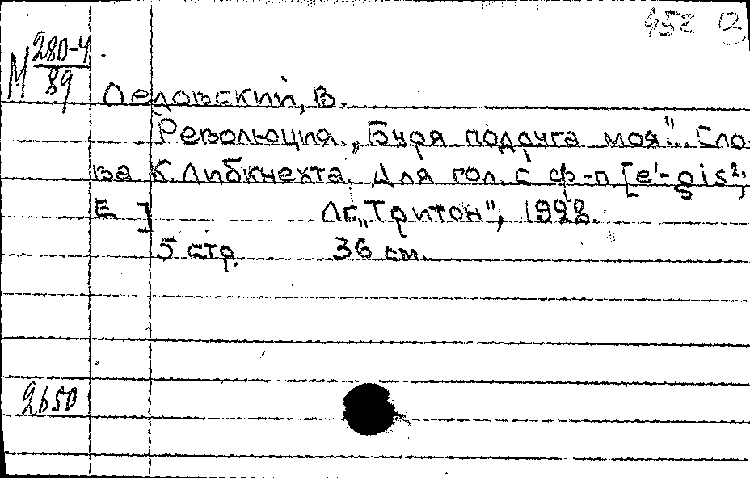 452
М 280-4
89
Деловский, В.
[Революция. „Буря подруга моя". Сло-
ва К. Либкнехта. Для гол. с ф-п [e'-gis²;
E]
Лг., „Тритон", 1928.
5 стр. 36 см.
2650